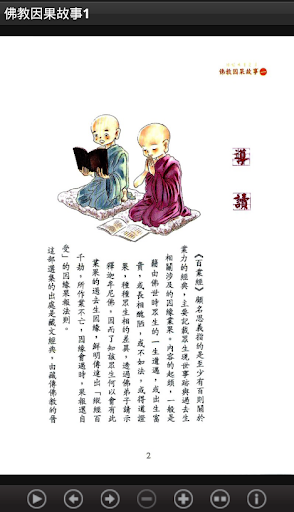 佛教因果故事1
佛教因果故事
導讀
《百業經》顧名思義指的是至少有百則關於
業力的經典，主要記載眾生現世事跡與過去生
相關涉及的因緣業果。內容的起頭，一般是
藉由佛世時眾生的一生遭遇，或出生富
貴，或長相醜陋，或不如法，或得道證
果，種種眾生相的差異，透過佛弟子請示
釋迦牟尼佛。因而了知該眾生何以會有此
業果的過去生因緣，鮮明傳達出「縱經百
千劫，所作業不亡，因緣會遇時，果報還自
受」的因緣果報法則。
這部選集的出處是藏文經典，由藏傳佛教的晉
2